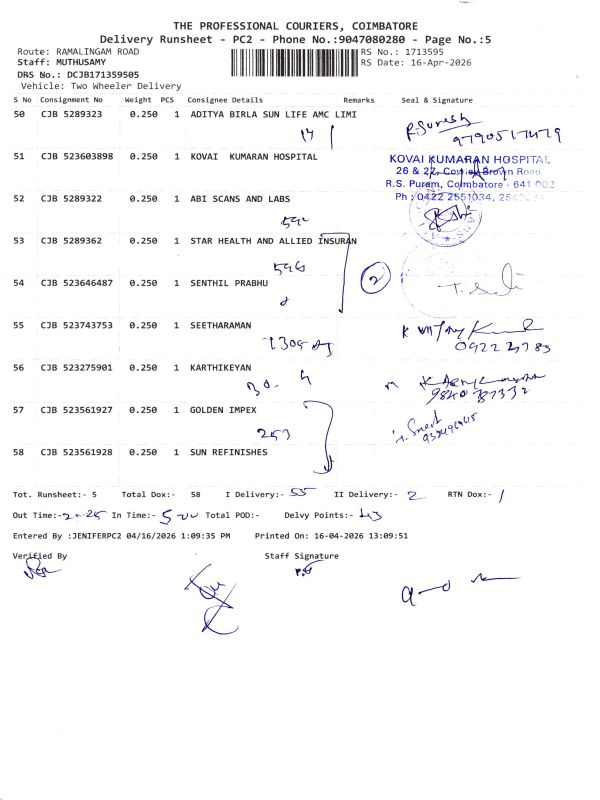 THE PROFESSIONAL COURIERS, COIMBATORE
Delivery Runsheet - PC2 - Phone No.:9047080280 - Page No.:5
Route: RAMALINGAM ROAD RS No.: 1713595
Staff: MUTHUSAMY RS Date: 16-Apr-2026
DRS No.: DCJB171359505
Vehicle: Two Wheeler Delivery
S No Consignment No Weight PCS Consignee Details Remarks Seal & Signature
50 CJB 5289323 0.250 1 ADITYA BIRLA SUN LIFE AMC LIMI
14 P. Suresh
9790517479
51 CJB 523603898 0.250 1 KOVAI KUMARAN HOSPITAL KOVAI KUMARAN HOSPITAL
R.S. Puram, Coimbatore - 641 002
52 CJB 5289322 0.250 1 ABI SCANS AND LABS Ph : 0422 2551034,
53 CJB 5289362 0.250 1 STAR HEALTH AND ALLIED INSURAN
596
54 CJB 523646487 0.250 1 SENTHIL PRABHU 2
55 CJB 523743753 0.250 1 SEETHARAMAN
56 CJB 523275901 0.250 1 KARTHIKEYAN
57 CJB 523561927 0.250 1 GOLDEN IMPEX
253
58 CJB 523561928 0.250 1 SUN REFINISHES
Tot. Runsheet:- 5 Total Dox:- 58 I Delivery:- 55 II Delivery:- 2 RTN Dox:- 1
Out Time:- In Time:- 5 Total POD:- Delvy Points:- 43
Entered By :JENIFERPC2 04/16/2026 1:09:35 PM Printed On: 16-04-2026 13:09:51
Verified By Staff Signature